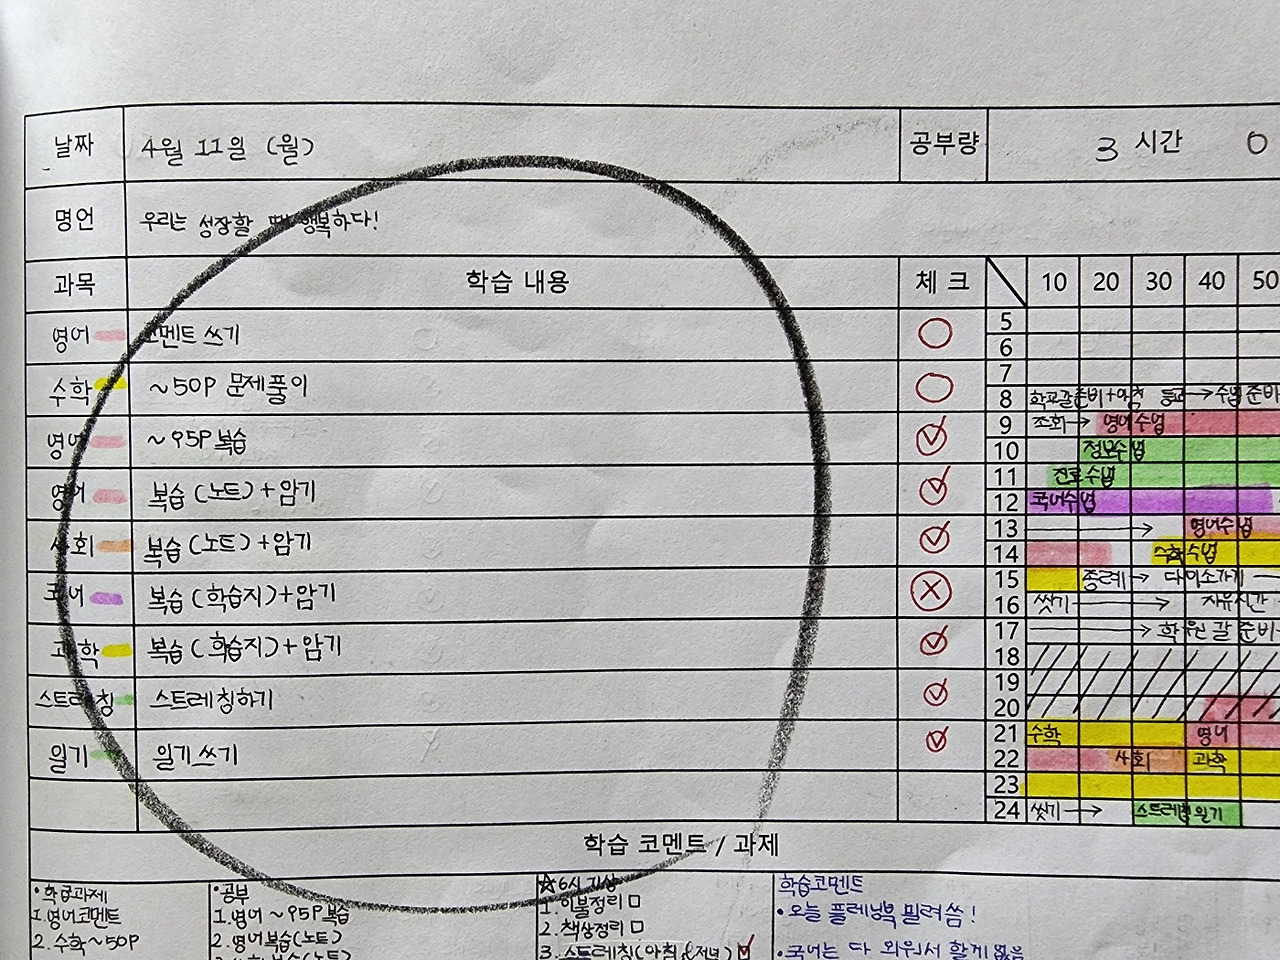 날짜 4월 11일 (월) 공부량 3 시간 0
명언 우리는 성장할 때 행복하다!
과목 학습 내용 체 크 10 20 30 40 50
영어 코멘트 쓰기
수학 ~50P 문제풀이
영어 ~95P 복습
영어 복습 (노트) + 암기
사회 복습 (노트) + 암기
국어 복습 (학습지) + 암기
과학 복습 (학습지) + 암기
스트레칭 스트레칭하기
일기 일기 쓰기
5
6
7
8 학교갈준비+아침 등교→수업 준비
9 조회→ 영어수업
10 정보수업
11 진로수업
12 국어수업
13 영어수업
14 수학수업
15 종례→ 다이소가기
16 씻기 → 자유시간
17 → 학원 갈 준비
18
19
20
21 수학 영어
22 사회 과학
23
24 씻기→ 스트레칭 일기
학습 코멘트 / 과제
•학급과제
1.영어코멘트
2.수학~50P
•공부
1.영어 ~95P복습
2.영어복습(노트)
☆6시 기상
1.이불정리
2.책상정리
3.스트레칭(아침&저녁)
학습코멘트
•오늘 플래너북 밀려씀!
•국어는 다 외워서 할게 없음